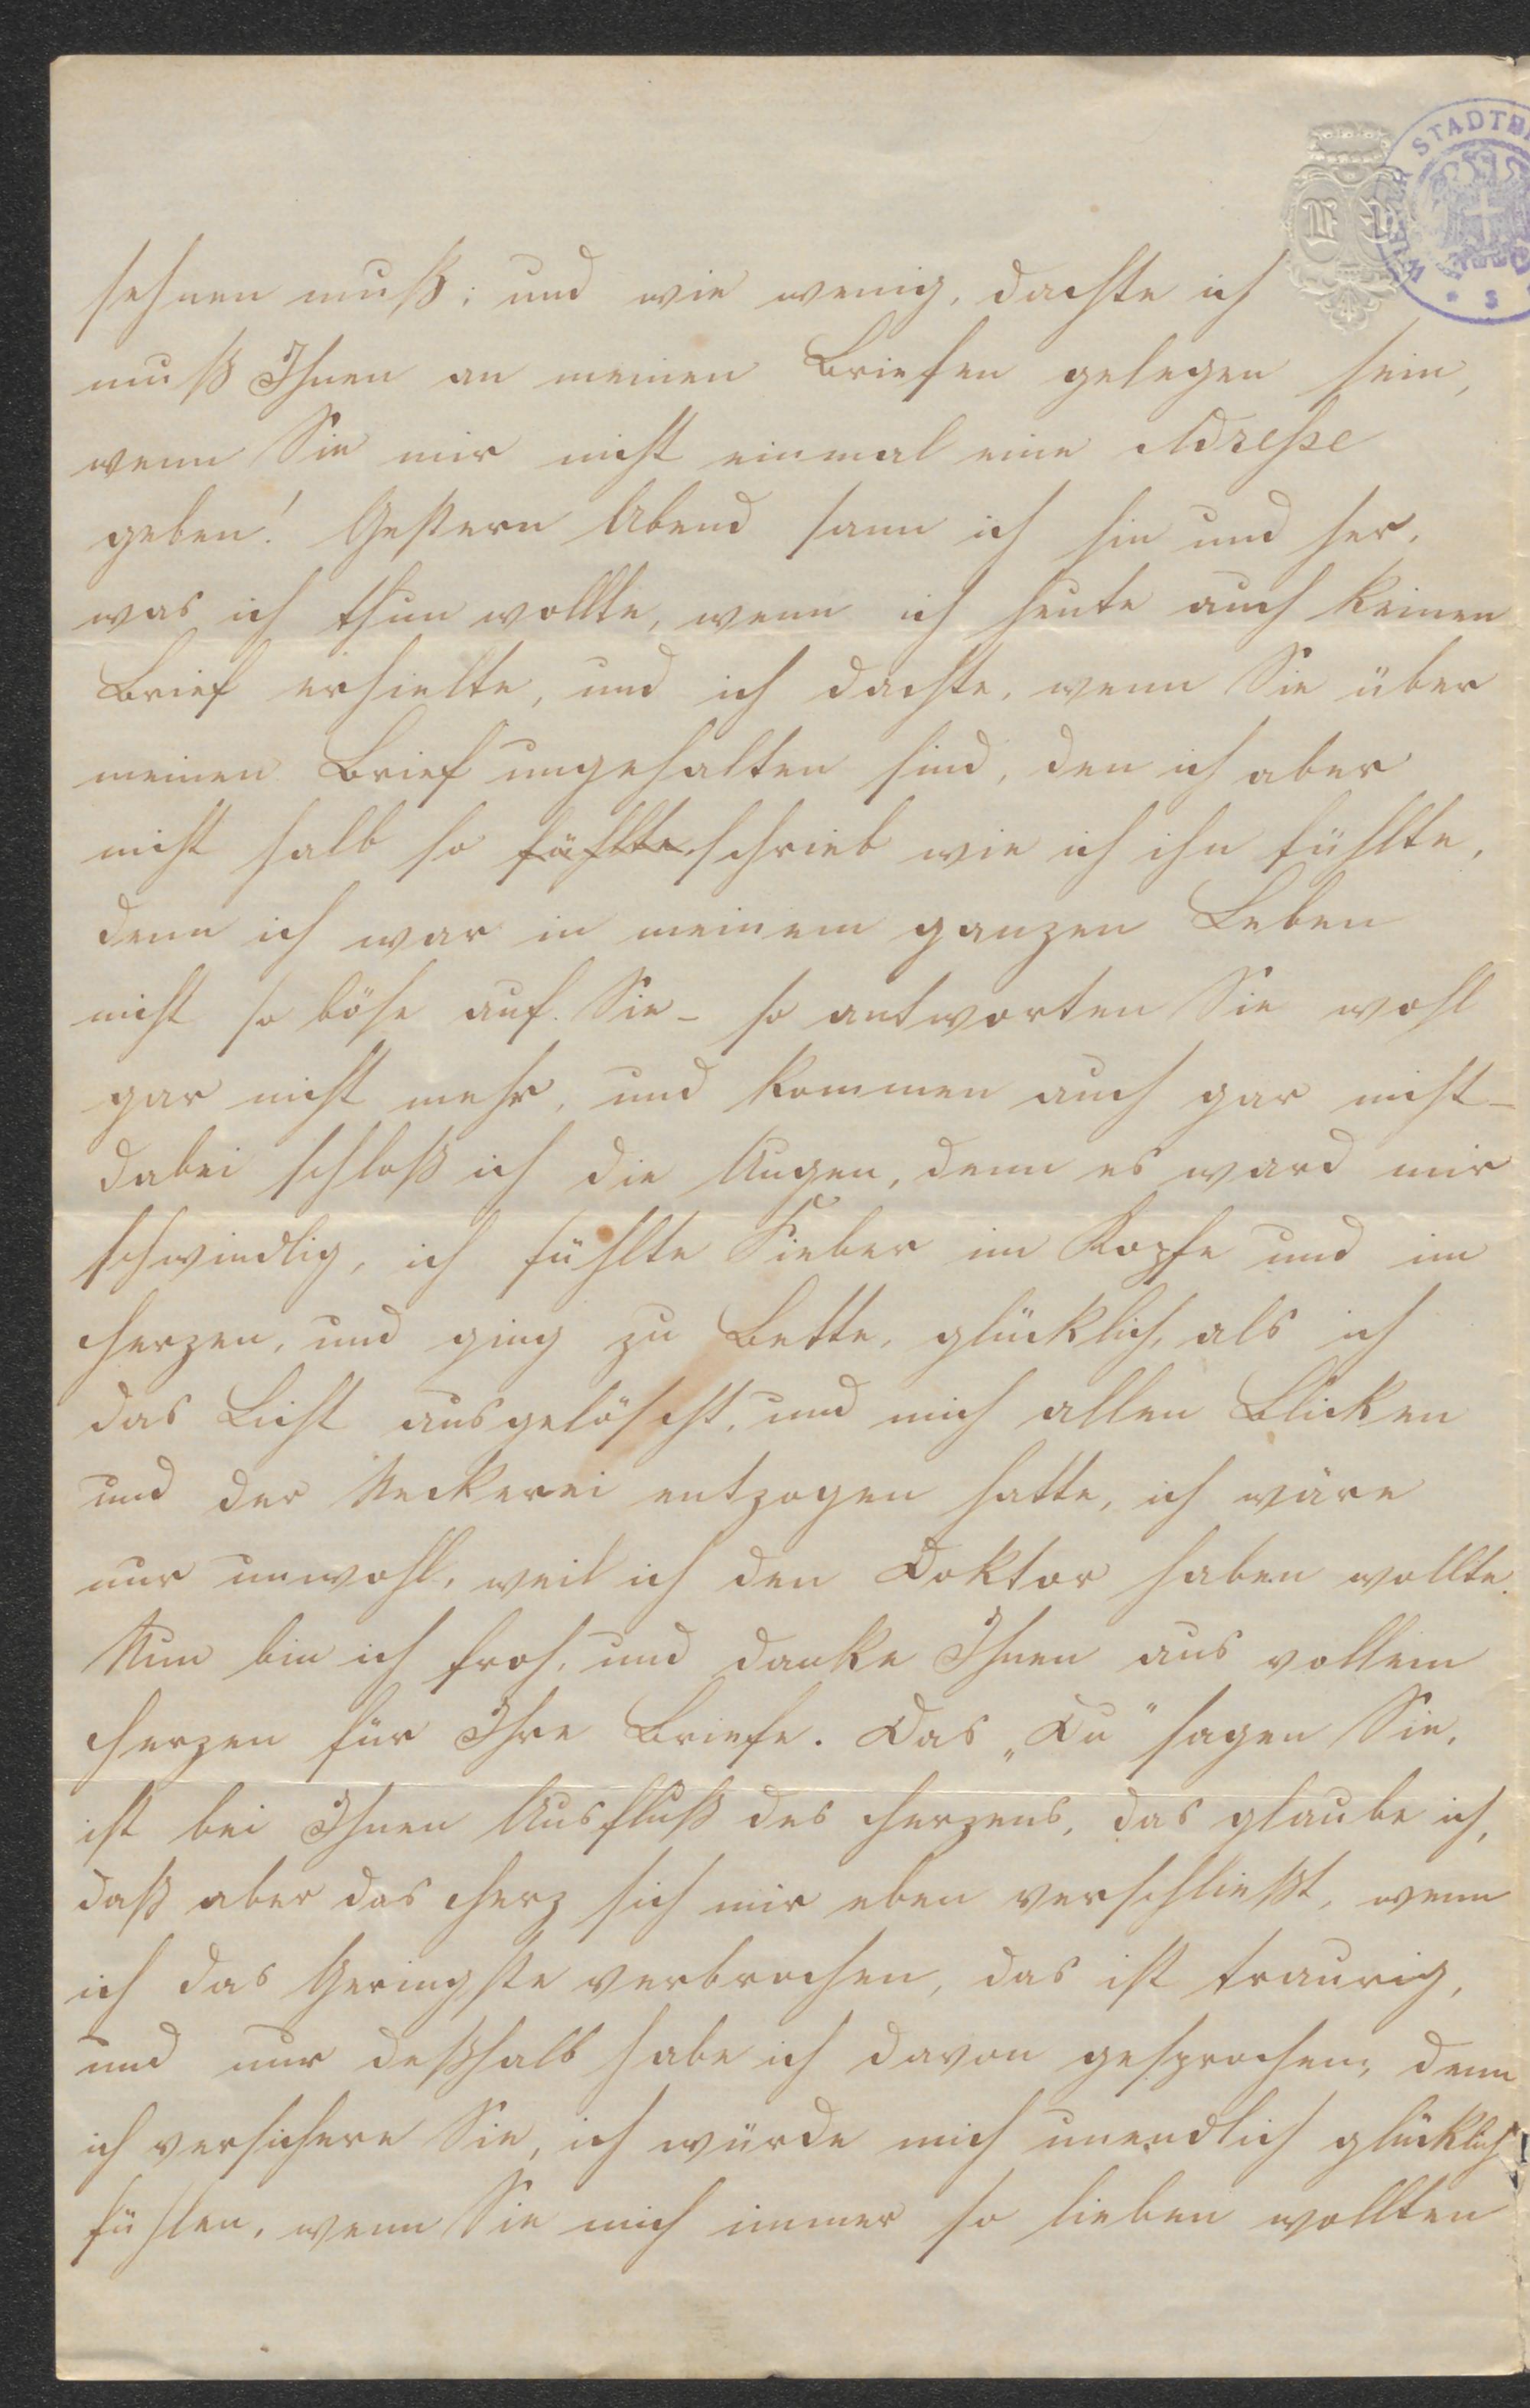 WIENER STADTB
* S
sehnen muß; und wie wenig, dachte ich
muß Ihnen an meinen Briefen gelegen sein,
wenn Sie mir nicht einmal eine Adresse
geben! Gestern Abend sann ich hin und her,
was ich thun wollte, wenn ich heute auch keinen
Brief erhielte, und ich dachte, wenn Sie über
meinen Brief ungehalten sind, den ich aber
nicht halb so fühlte schrieb wie ich ihn fühlte,
denn ich war in meinem ganzen Leben
nicht so böse auf Sie – so antworten Sie wohl
gar nicht mehr, und kommen auch gar nicht –
dabei schloß ich die Augen, denn es ward mir
schwindlig, ich fühlte Fieber im Kopfe und im
Herzen, und ging zu Bette, glücklich, als ich
das Licht ausgelöscht, und mich allen Blicken
und der Neckerei entzogen hatte, ich wäre
nur unwohl, weil ich den Doktor haben wollte.
Nun bin ich froh, und danke Ihnen aus vollem
Herzen für Ihre Briefe. Das „Du" sagen Sie,
ist bei Ihnen Ausfluß des Herzens, das glaube ich,
daß aber das Herz sich mir eben verschließt, wenn
ich das Geringste verbrochen, das ist traurig,
und nur deßhalb habe ich davon gesprochen, denn
ich versichere Sie, ich würde mich unendlich glücklich
fühlen, wenn Sie mich immer so lieben wollten